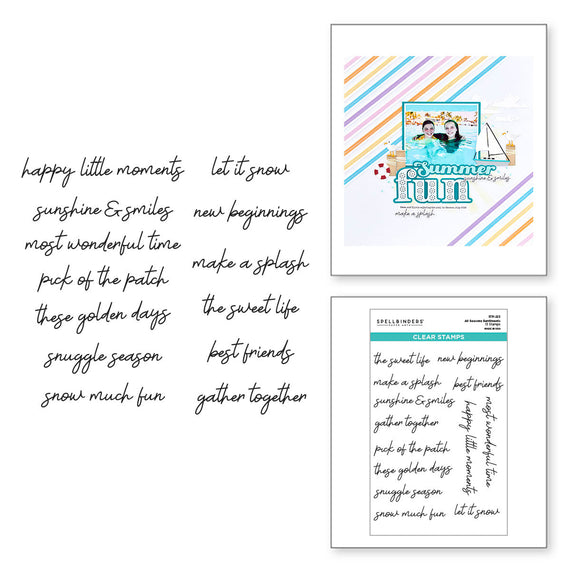 happy little moments
sunshine & smiles
most wonderful time
pick of the patch
these golden days
snuggle season
snow much fun
let it snow
new beginnings
make a splash
the sweet life
best friends
gather together
Summer
sunshine & smiles
fun
make a splash
SPELLBINDERS
PAPER ARTS
All Seasons Sentiments
13 Stamps
MADE IN USA
CLEAR STAMPS
the sweet life
new beginnings
make a splash
best friends
sunshine & smiles
gather together
most wonderful time
happy little moments
pick of the patch
these golden days
snuggle season
snow much fun
let it snow